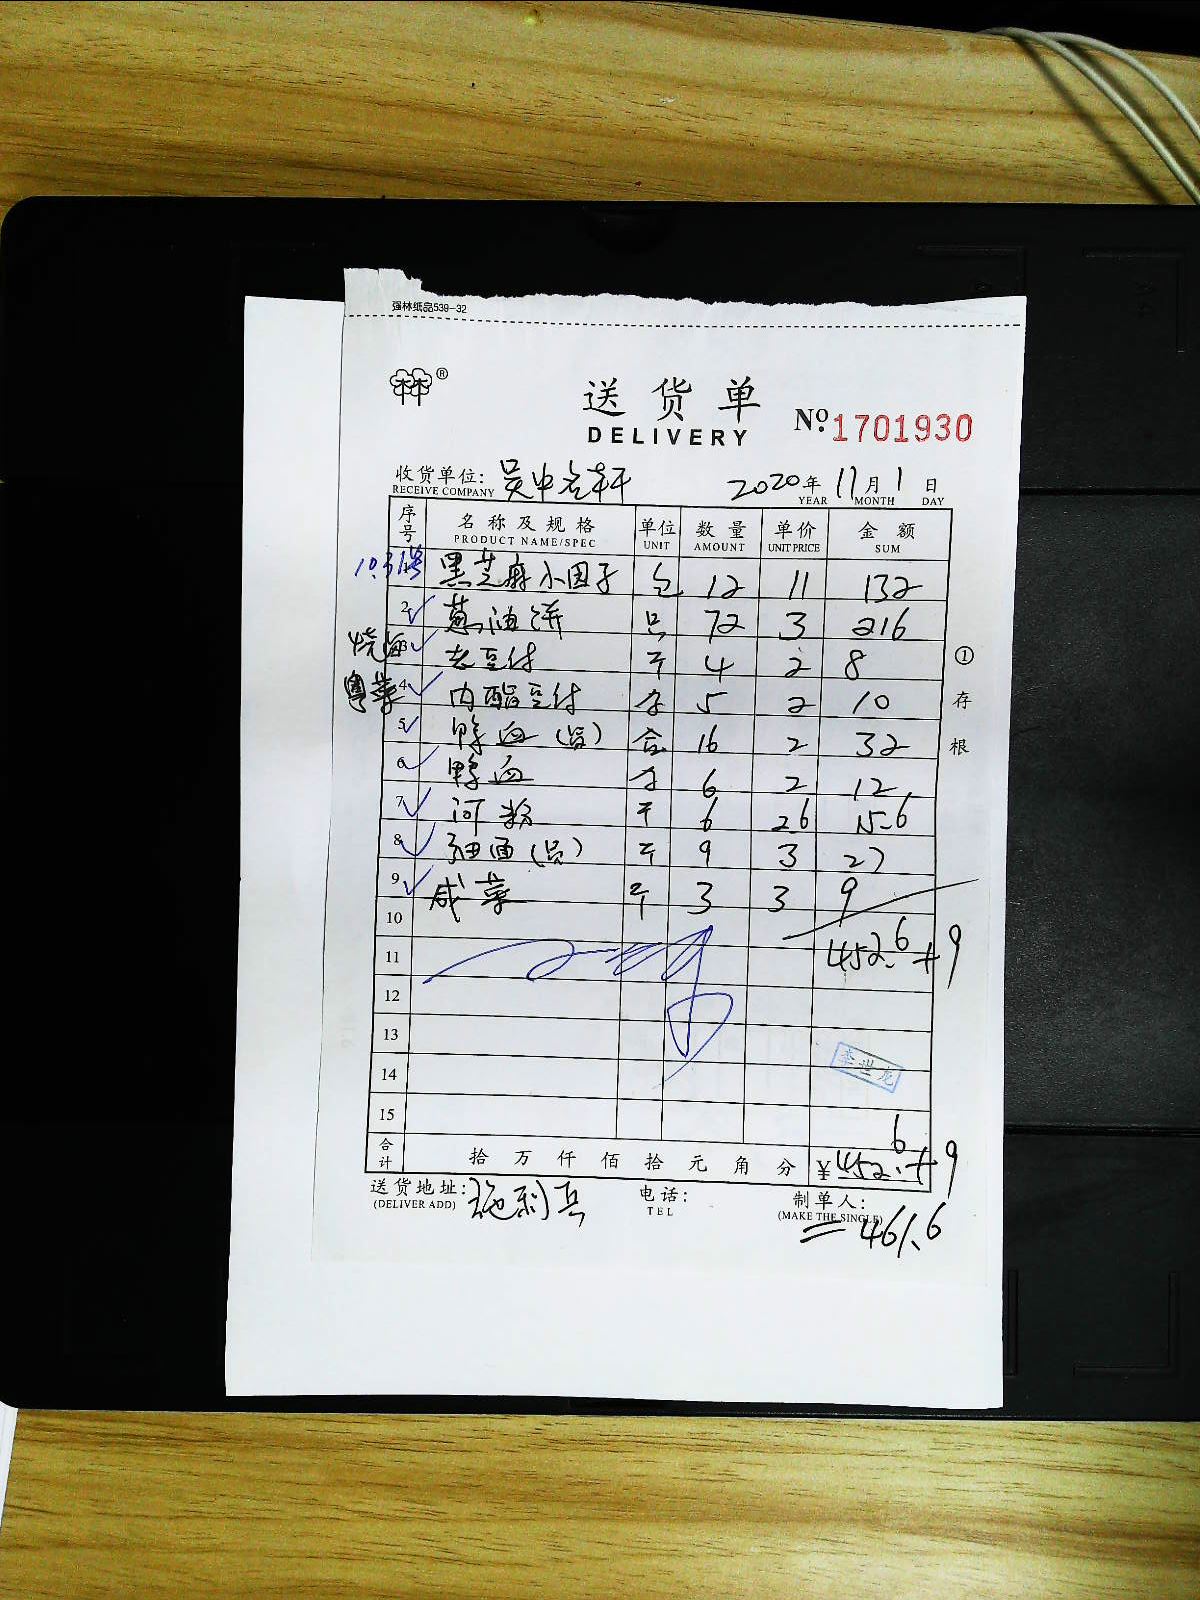 强林纸品539-32
®
送货单
DELIVERY
№ 1701930
收货单位: 吴中名轩 2020年11月1日
RECEIVE COMPANY YEAR MONTH DAY
序号 名称及规格 单位 数量 单价 金额
PRODUCT NAME/SPEC UNIT AMOUNT UNIT PRICE SUM
黑芝麻小园子 包 12 11 132
2 葱油饼 只 72 3 216
3 老豆付 斤 4 2 8
粤菜
4 内酯豆付 5 2 10
5 鸭血 合 16 2 32
6 鸭血 6 2 12
7 河粉 斤 6 26 15.6
8 细面 斤 9 3 27
9 咸菜 斤 3 3 9
10
452.6+9
11
12
13
李世龙
14
15
合计 拾万仟佰拾元角分 ¥452.6+9
送货地址: 施利兵 电话: 制单人:
(DELIVER ADD) TEL (MAKE THE SINGLE)
=461.6
①存根